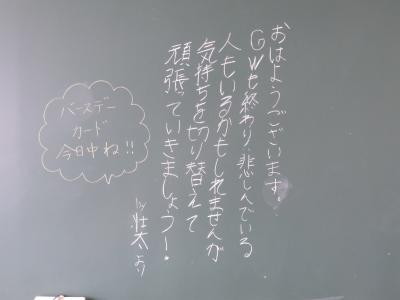 おはようございます。
GWも終わり、悲しんでいる
人もいるかもしれませんが
気持ちを切り替えて
頑張っていきましょう!
by 壮太より
バースデー
カード
今日中ね!!